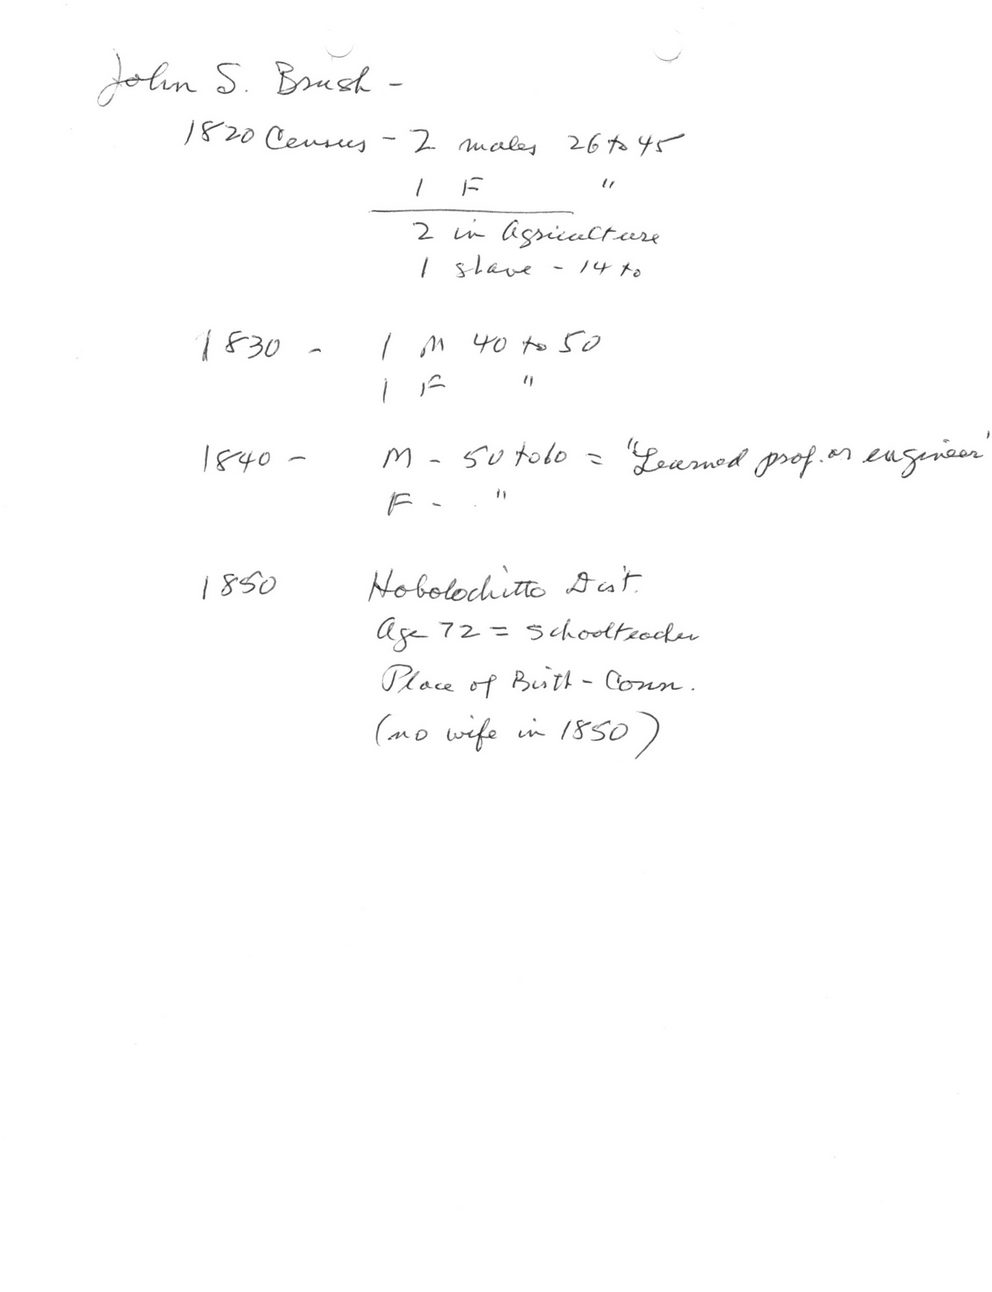 John S. Brush -
1820 Census - 2 males 26 to 45
1 F "
2 in Agriculture
1 slave - 14 to
1830 - 1 M 40 to 50
1 F "
1840 - M - 50 to 60 = "Learned prof. or engineer"
F - "
1850 Hobolochitto Dist.
Age 72 = Schoolteacher
Place of Birth - Conn.
(no wife in 1850)